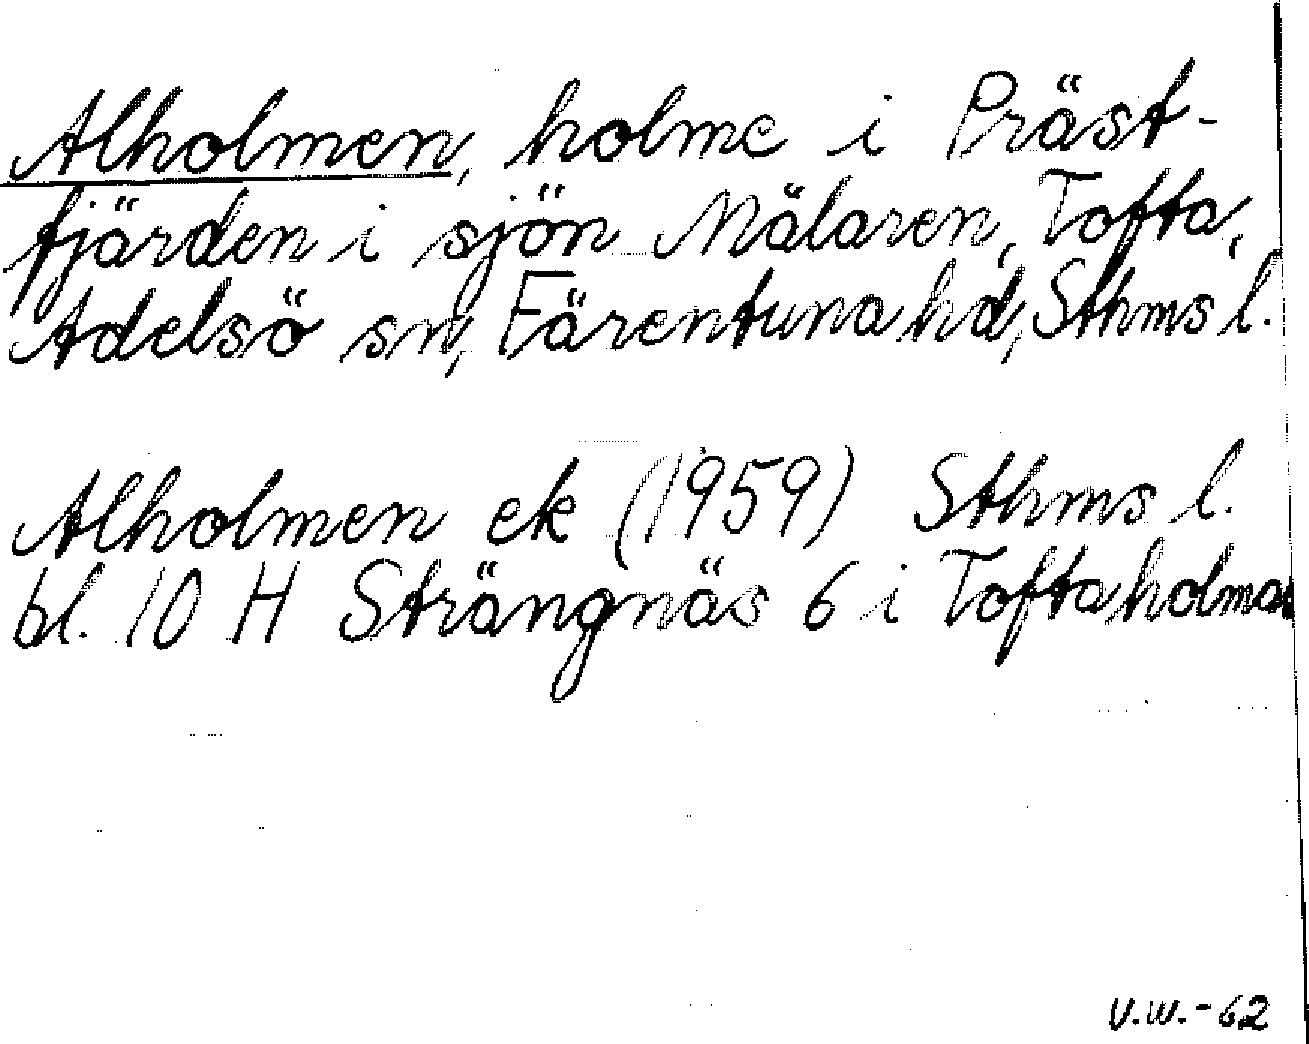 Alholmen, holme i Präst-
fjärden i sjön Mälaren, Tofta,
Adelsö sn, Färentuna hd, Sthms l.
Alholmen ek (1959) Sthms l.
bl. 10 H Strängnäs 6 i Toftaholmar
V.W.-62